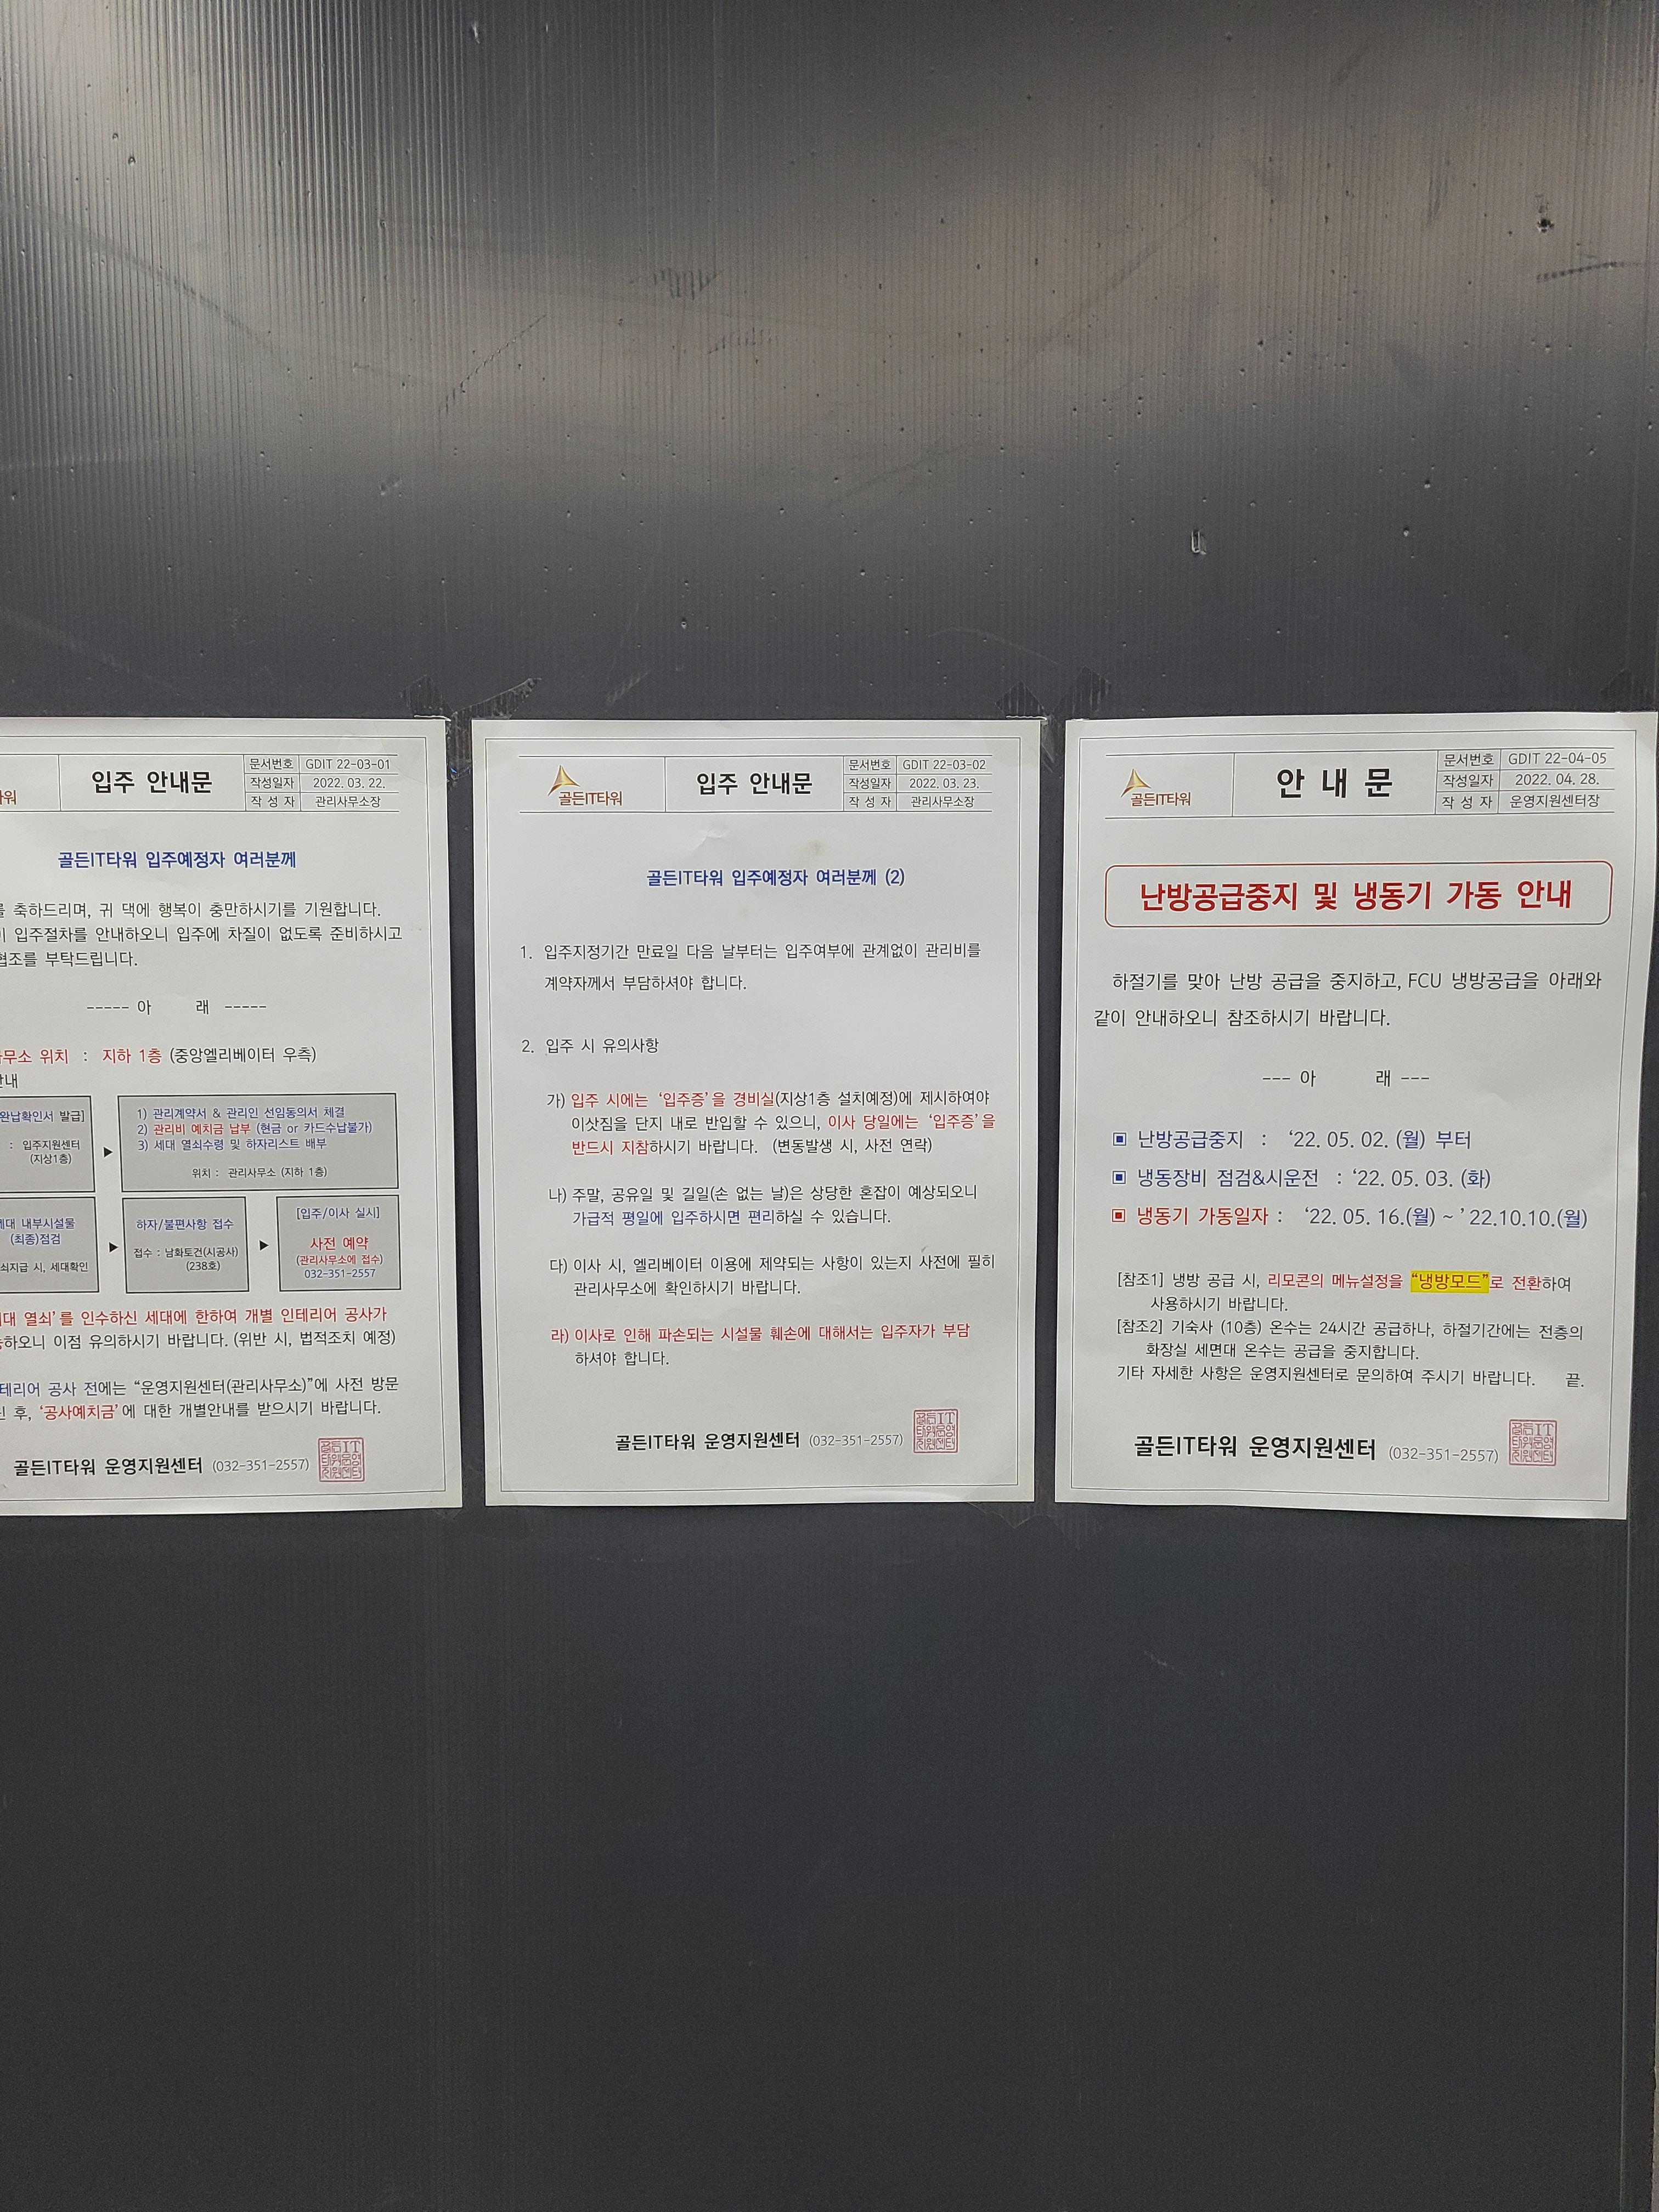 타워
입주 안내문
문서번호 GDIT 22-03-01
작성일자 2022. 03. 22.
작 성 자 관리사무소장
골든IT타워 입주예정자 여러분께
를 축하드리며, 귀 댁에 행복이 충만하시기를 기원합니다.
이 입주절차를 안내하오니 입주에 차질이 없도록 준비하시고
협조를 부탁드립니다.
----- 아 래 -----
사무소 위치 : 지하 1층 (중앙엘리베이터 우측)
안내
완납확인서 발급]
: 입주지원센터
(지상1층)
▶
1) 관리계약서 & 관리인 선임동의서 체결
2) 관리비 예치금 납부 (현금 or 카드수납불가)
3) 세대 열쇠수령 및 하자리스트 배부
위치 : 관리사무소 (지하 1층)
세대 내부시설물
(최종)점검
쇠지급 시, 세대확인
▶
하자/불편사항 접수
접수 : 남화토건(시공사)
(238호)
▶
[입주/이사 실시]
사전 예약
(관리사무소에 접수)
032-351-2557
대 열쇠'를 인수하신 세대에 한하여 개별 인테리어 공사가
하오니 이점 유의하시기 바랍니다. (위반 시, 법적조치 예정)
테리어 공사 전에는 “운영지원센터(관리사무소)”에 사전 방문
신 후, '공사예치금'에 대한 개별안내를 받으시기 바랍니다.
골든IT타워 운영지원센터 (032-351-2557)
골든IT타워
입주 안내문
문서번호 GDIT 22-03-02
작성일자 2022. 03. 23.
작 성 자 관리사무소장
골든IT타워 입주예정자 여러분께 (2)
1. 입주지정기간 만료일 다음 날부터는 입주여부에 관계없이 관리비를
계약자께서 부담하셔야 합니다.
2. 입주 시 유의사항
가) 입주 시에는 '입주증'을 경비실(지상1층 설치예정)에 제시하여야
이삿짐을 단지 내로 반입할 수 있으니, 이사 당일에는 '입주증'을
반드시 지참하시기 바랍니다. (변동발생 시, 사전 연락)
나) 주말, 공유일 및 길일(손 없는 날)은 상당한 혼잡이 예상되오니
가급적 평일에 입주하시면 편리하실 수 있습니다.
다) 이사 시, 엘리베이터 이용에 제약되는 사항이 있는지 사전에 필히
관리사무소에 확인하시기 바랍니다.
라) 이사로 인해 파손되는 시설물 훼손에 대해서는 입주자가 부담
하셔야 합니다.
골든IT타워 운영지원센터 (032-351-2557)
골든IT타워
안 내 문
문서번호 GDIT 22-04-05
작성일자 2022. 04. 28.
작 성 자 운영지원센터장
난방공급중지 및 냉동기 가동 안내
하절기를 맞아 난방 공급을 중지하고, FCU 냉방공급을 아래와
같이 안내하오니 참조하시기 바랍니다.
--- 아 래 ---
▣ 난방공급중지 : '22. 05. 02. (월) 부터
▣ 냉동장비 점검&시운전 : '22. 05. 03. (화)
▣ 냉동기 가동일자 : '22. 05. 16.(월) ~ '22.10.10.(월)
[참조1] 냉방 공급 시, 리모콘의 메뉴설정을 “냉방모드”로 전환하여
사용하시기 바랍니다.
[참조2] 기숙사 (10층) 온수는 24시간 공급하나, 하절기간에는 전층의
화장실 세면대 온수는 공급을 중지합니다.
기타 자세한 사항은 운영지원센터로 문의하여 주시기 바랍니다. 끝.
골든IT타워 운영지원센터 (032-351-2557)